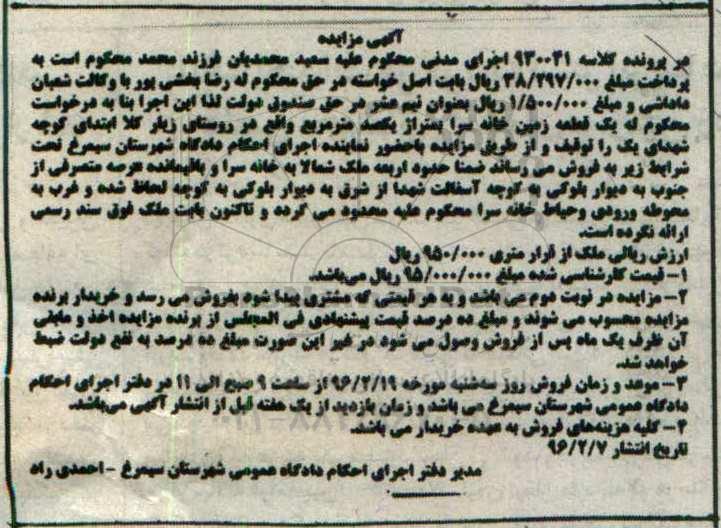 آگهی مزایده
در پرونده کلاسه ۹۳۰۰۴۱ اجرای مدنی محکوم علیه سعید محمدیان فرزند محمد محکوم است به
پرداخت مبلغ ۳۸/۲۹۷/۰۰۰ ریال بابت اصل خواسته در حق محکوم له رضا بخشی پور با وکالت شعبان
ماداشی و مبلغ ۱/۵۰۰/۰۰۰ ریال بعنوان نیم عشر در حق صندوق دولت لذا این اجرا بنا به درخواست
محکوم له یک قطعه زمین خانه سرا بمتراژ یکصد مترمربع واقع در روستای زیار کلا ابتدای کوچه
شهدای یک را توقیف و از طریق مزایده باحضور نماینده اجرای احکام دادگاه شهرستان سیمرغ تحت
شرایط زیر به فروش می رساند ضمنا حدود اربعه ملک شمالا به خانه سرا و باقیمانده عرصه متصرفی از
جنوب به دیوار بلوکی به کوچه آسفالت شهدا از شرق به دیوار بلوکی به کوچه لحاظ شده و غرب به
محوطه ورودی وحیاط خانه سرا محکوم علیه محدود می گردد و تاکنون بابت ملک فوق سند رسمی
ارائه نگردد است.
ارزش ریالی ملک از قرار متری ۹۵۰/۰۰۰ ریال
۱- قیمت کارشناسی شده مبلغ ۹۵/۰۰۰/۰۰۰ ریال می‌باشد.
۲- مزایده در نوبت دوم می باشد و به هر قیمتی که مشتری پیدا شود بفروش می رسد و خریدار برنده
مزایده محسوب می شوند و مبلغ ده درصد قیمت پیشنهادی فی المجلس از برنده مزایده اخذ و مابقی
آن ظرف یک ماه پس از فروش وصول می شود در غیر این صورت مبلغ ده درصد به نفع دولت ضبط
خواهد شد.
۳- موعد و زمان فروش روز سه‌شنبه مورخه ۹۶/۲/۱۹ از ساعت ۹ صبح الی ۱۱ در دفتر اجرای احکام
دادگاه عمومی شهرستان سیمرغ می باشد و زمان بازدید از یک هفته قبل از انتشار آگهی می‌باشد.
۴- کلیه هزینه‌های فروش به عهده خریدار می باشد.
تاریخ انتشار ۹۶/۲/۷
مدیر دفتر اجرای احکام دادگاه عمومی شهرستان سیمرغ - احمدی راد